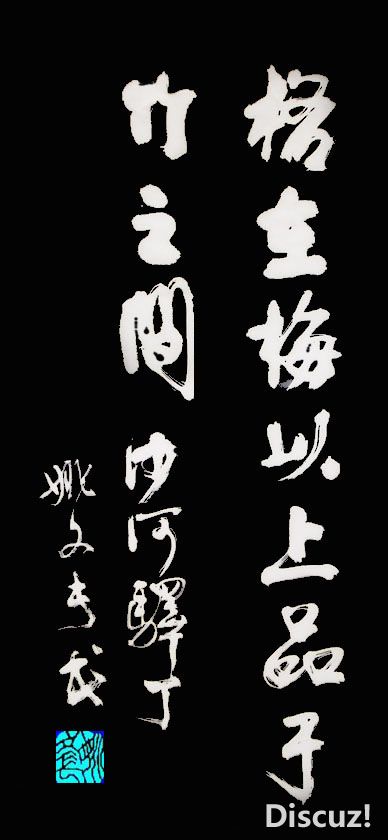 格在梅以上品于
竹之間 沙河驛丁
姚文
Discuz!